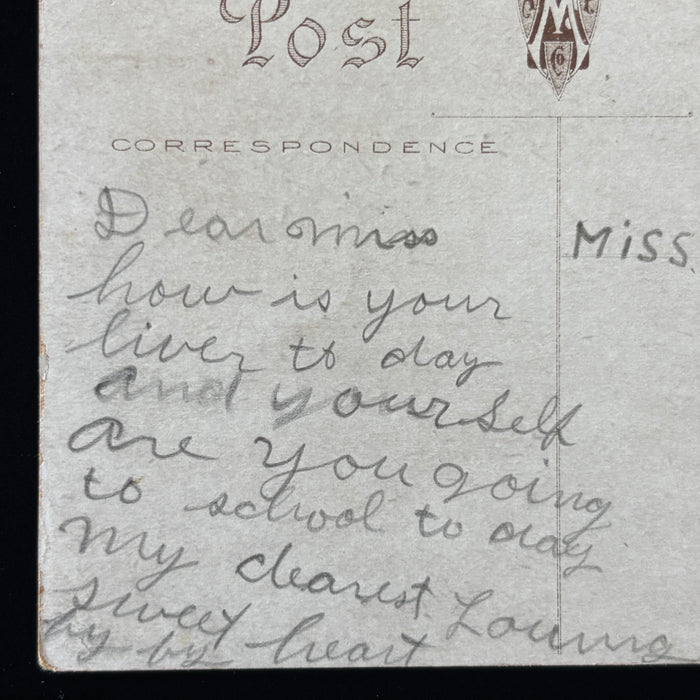 Post
CORRESPONDENCE
Dear miss
MiSS.
how is your
liver to day
and yourself
are you going
to school to day
my dearest Loving
sweet heart
by by